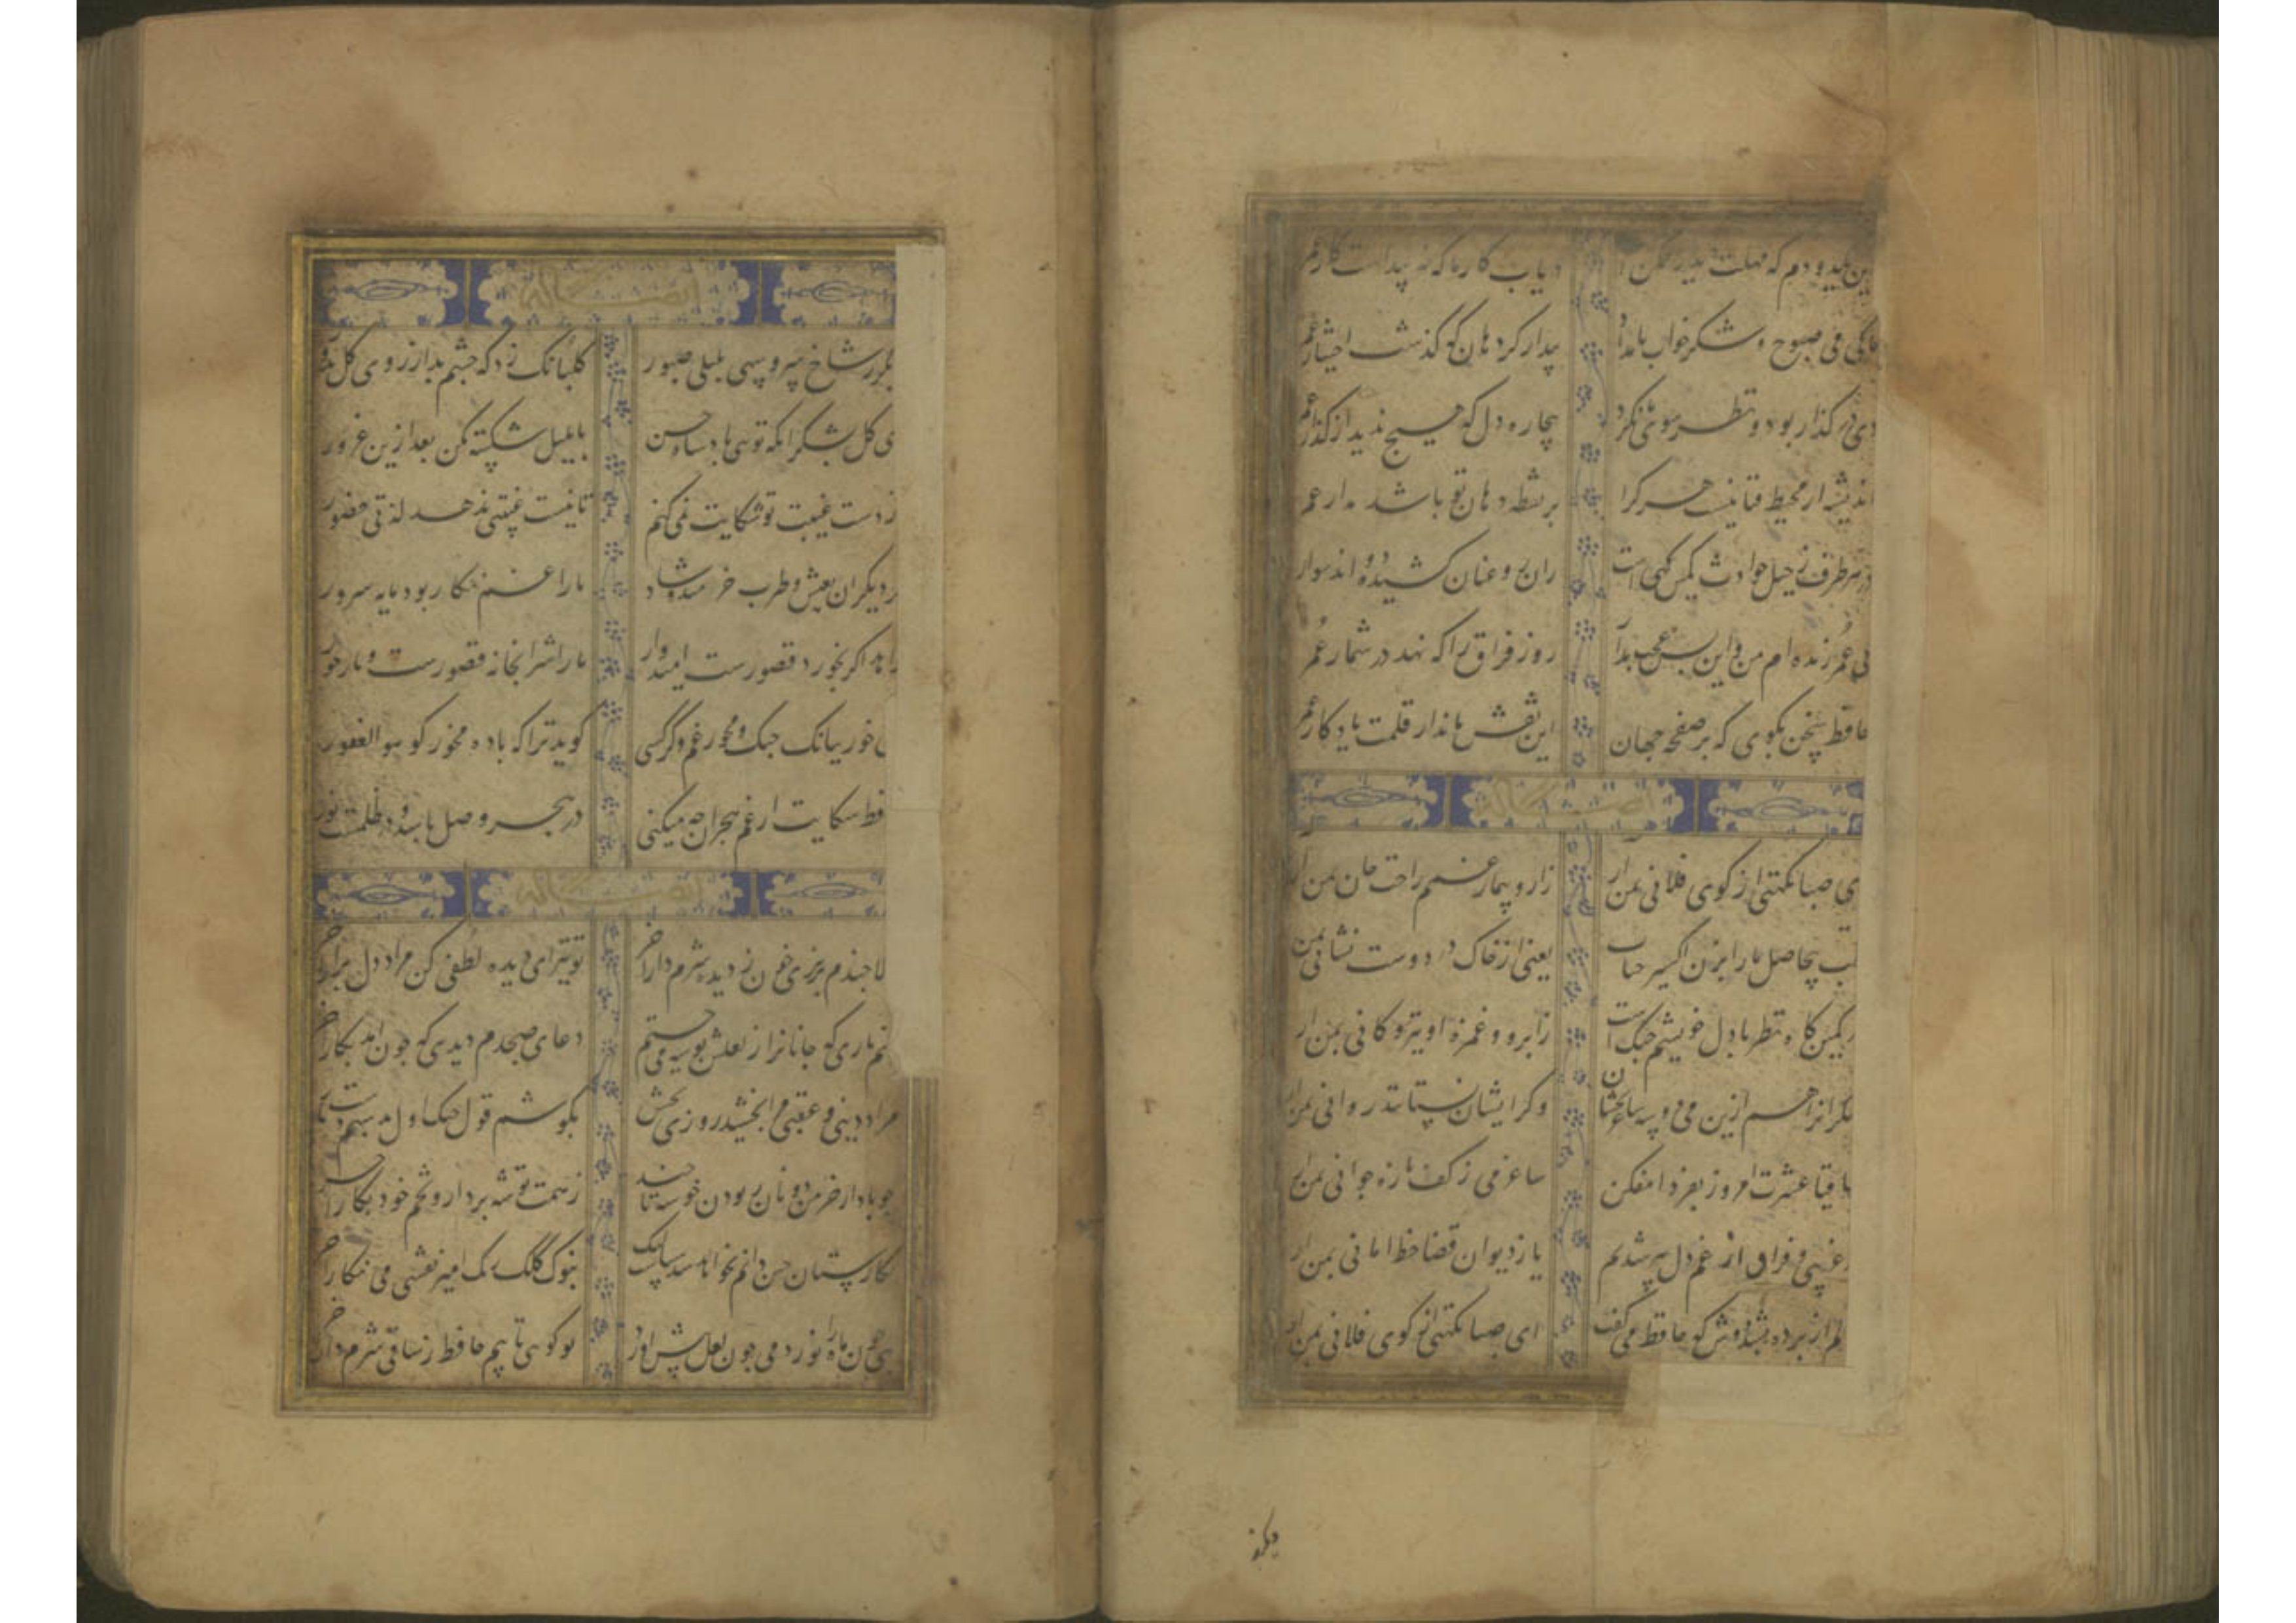 این یکدو دم که مهلت دیدار ممکن است دریاب کار ما که نه پیداست کار عمر
تا کی می صبوح و شکر خواب بامداد بیدار گرد هان که گذشت اختیار عمر
دی در گذار بود و نظر سوی ما نکرد بیچاره دل که هیچ ندید از گذار عمر
اندیشه از محیط فنا نیست هر کرا بر نقطه دهان تو باشد مدار عمر
در هر طرف ز خیل حوادث کمین گهی است زان رو عنان کشیده دواند سوار عمر
بی عمر زنده ام من و این بس عجب مدار روز فراق را که نهد در شمار عمر
حافظ سخن بگوی که بر صفحه جهان این نقش ماند از قلمت یادگار عمر
ای صبا نکهتی از کوی فلانی بمن ار زار و بیمار غمم راحت جان بمن ار
قلب بیحاصل ما را بزن اکسیر حیات یعنی از خاک در دوست نشانی بمن ار
در کمین گاه نظر با دل خویشم جنک است ز ابرو و غمزه او تیر و کمانی بمن ار
منکرانرا هم ازین می دو سه ساغر بچشان وگر ایشان نستانند روانی بمن ار
ساقیا عشرت امروز بفردا مفکن ساغر می ز کف تازه جوانی بمن ار
در غریبی و فراق از غم دل پیر شدم یا ز دیوان قضا خط امانی بمن ار
دلم از پرده بشد دوش که حافظ می گفت ای صبا نکهتی از کوی فلانی بمن ار
دیگر ز
ایضا له
دیگر ز شاخ سرو سهی بلبلی صبور گلبانگ زد که چشم بد از روی گل دور
ای گل بشکر انکه تویی پادشاه حسن با بلبل شکسته مکن بعد ازین غرور
از دست غیبت تو شکایت نمی کنم تا نیست غیبتی ندهد لذتی حضور
گر دیگران بعیش و طرب خرمند و شاد ما را غم نگار بود مایه سرور
زاهد اگر بحور و قصورست امیدوار ما را شرابخانه قصورست و یار حور
می خور ببانگ چنگ و مخور غم و گر کسی گوید ترا که باده مخور گو هو الغفور
حافظ شکایت از غم هجران چه میکنی در هجر وصل باشد و در ظلمتست نور
ایضا له
دلا چندم بریزی خون ز دیده شرم دار آخر تو نیز ای دیده لطفی کن مراد دل برار آخر
منم یا رب که جانانرا ز لعلش بوسه می چینم دعای صبحدم دیدی که چون آمد بکار آخر
مراد دینی و عقبی مرا بخشید روزی بخش بگوشم قول چنگ اول بدستم زلف یار آخر
چو باد از خرمن دونان ربودن خوشه تا چند ز همت توشه بردار و تخم خود بکار آخر
نگارستان چین دانم نخواهد شد سرایت لیک بنوک کلک رنگ امیز نقشی می نگار آخر
بتی چون ماه زانو زد می چون لعل پیش اورد تو گویی تایبم حافظ ز ساقی شرم دار آخر